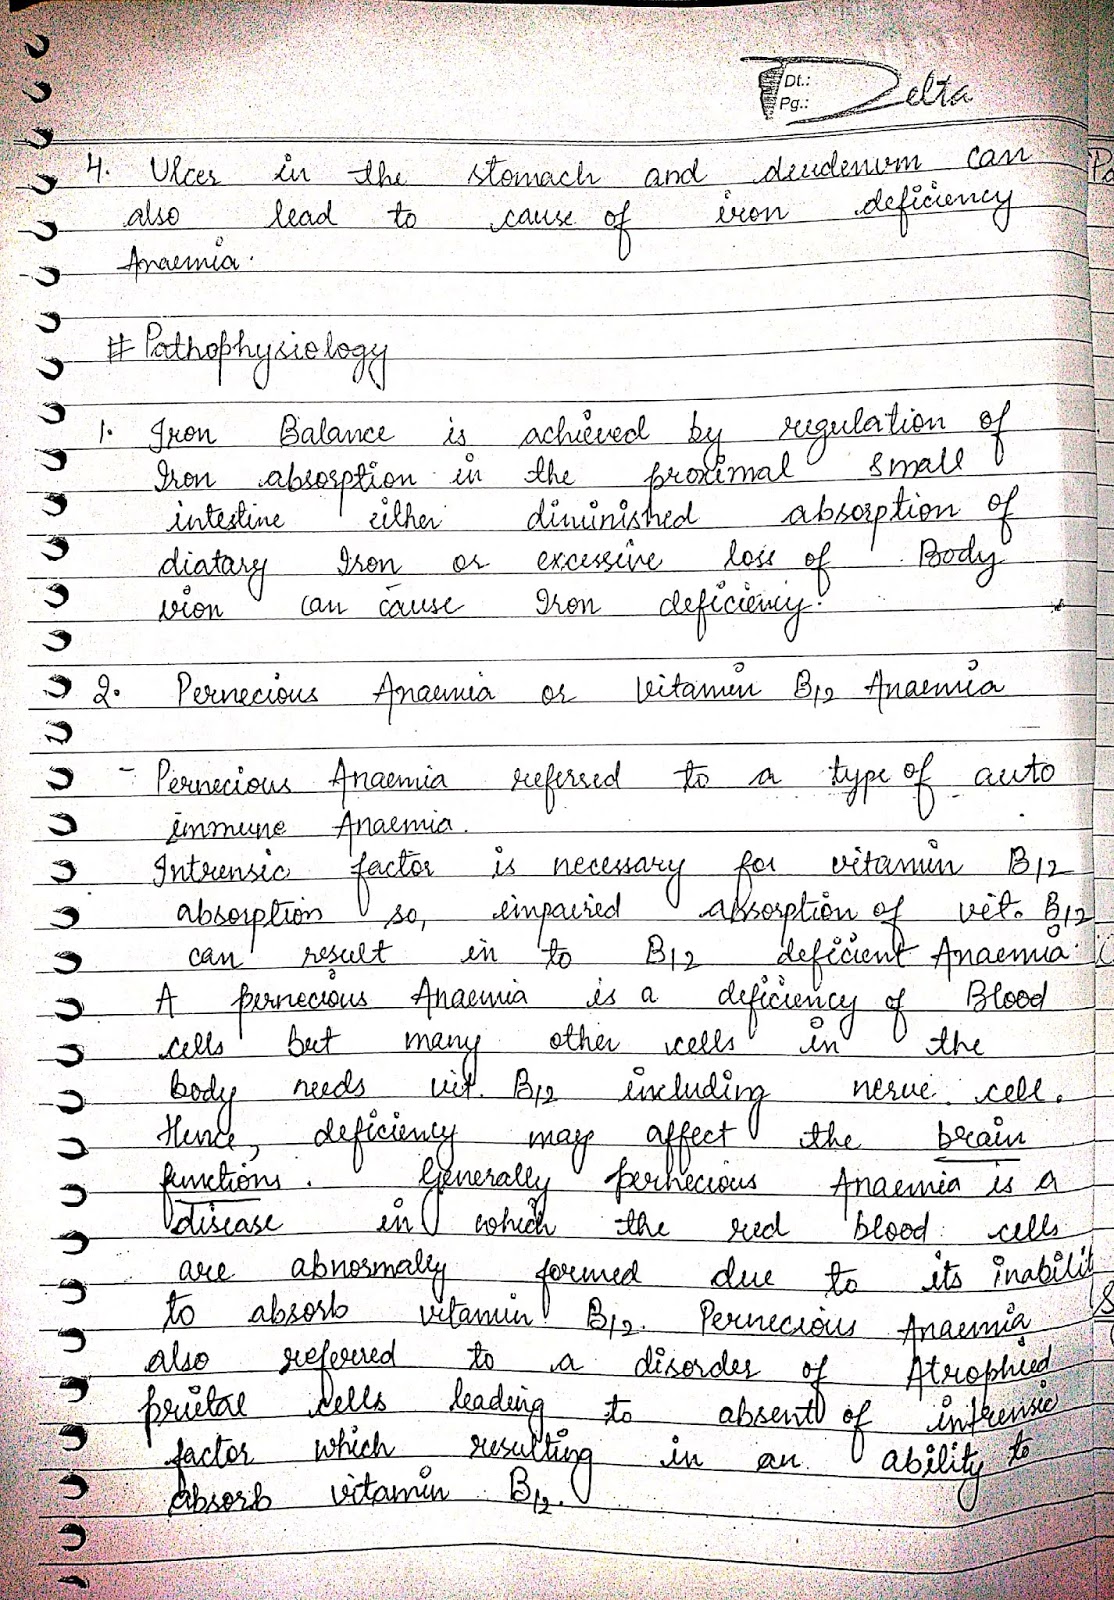 Dt.:
Pg.:
Delta
4. Ulcer in the stomach and deudenum can
also lead to cause of iron deficiency
Anaemia.
# Pathophysiology
1. Iron Balance is achieved by regulation of
Iron absorption in the proximal small
intestine either diminished absorption of
diatary Iron or excessive loss of Body
iron can cause Iron deficiency.
2. Pernecious Anaemia or Vitamin B12 Anaemia
- Pernecious Anaemia referred to a type of auto
immune Anaemia.
Intrensic factor is necessary for vitamin B12
absorption so, impaired absorption of vit. B12
can result in to B12 deficient Anaemia.
A pernecious Anaemia is a deficiency of Blood
cells but many other cells in the
body needs vit. B12 including nerve cell.
Hence, deficiency may affect the brain
functions. Generally pernecious Anaemia is a
disease in which the red blood cells
are abnormally formed due to its inabilit
to absorb vitamin B12. Pernecious Anaemia
also referred to a disorder of Atrophied
prietal cells leading to absent of intrensic
factor which resulting in an ability to
absorb vitamin B12.